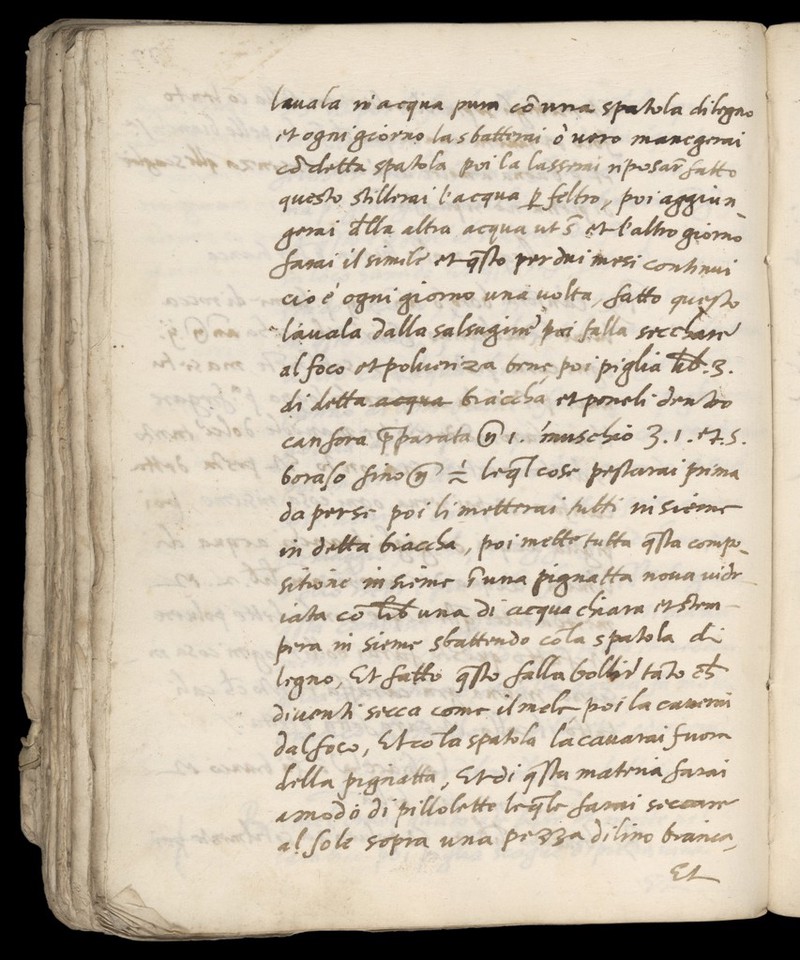 lauala in acqua pura cō una spatola di legno
et ogni giorno la sbatterai ò vero manegerai
cō detta spatola poi la lasserai riposar fatto
questo stillerai l'acqua p feltro, poi aggiun-
gerai dlla altra acqua ut s̄ et l'altro giorno
farai il simile et q̄sto per dui mesi continui
cio é ogni giorno una uolta, fatto questo
lauala dalla salsagine poi falla secchare
al foco et polueriza bene poi piglia lib. 3.
di detta acqua biaccha et poneli dentro
canfora p̄parata 1. muschio 3. 1. et. s.
boraso fino leq̄l cose pestarai prima
da perse poi li metterai tutti insieme
in detta biaccha, poi mette tutta q̄sta compo-
sitione insieme ī una pignatta noua uidr
iata co lib una di acqua chiara et stem-
pera insieme sbattendo cōla spatola di
legno, Et fatto q̄sto falla bollir tāto ch
diuenti secca come il mele, poi la cauerai
dal foco, Et co la spatola la cauarai fuora
della pignatta, Et di q̄sta materia farai
a modo di pillolette leq̄le farai seccare
al sole sopra una pezza di lino bianca,
Et